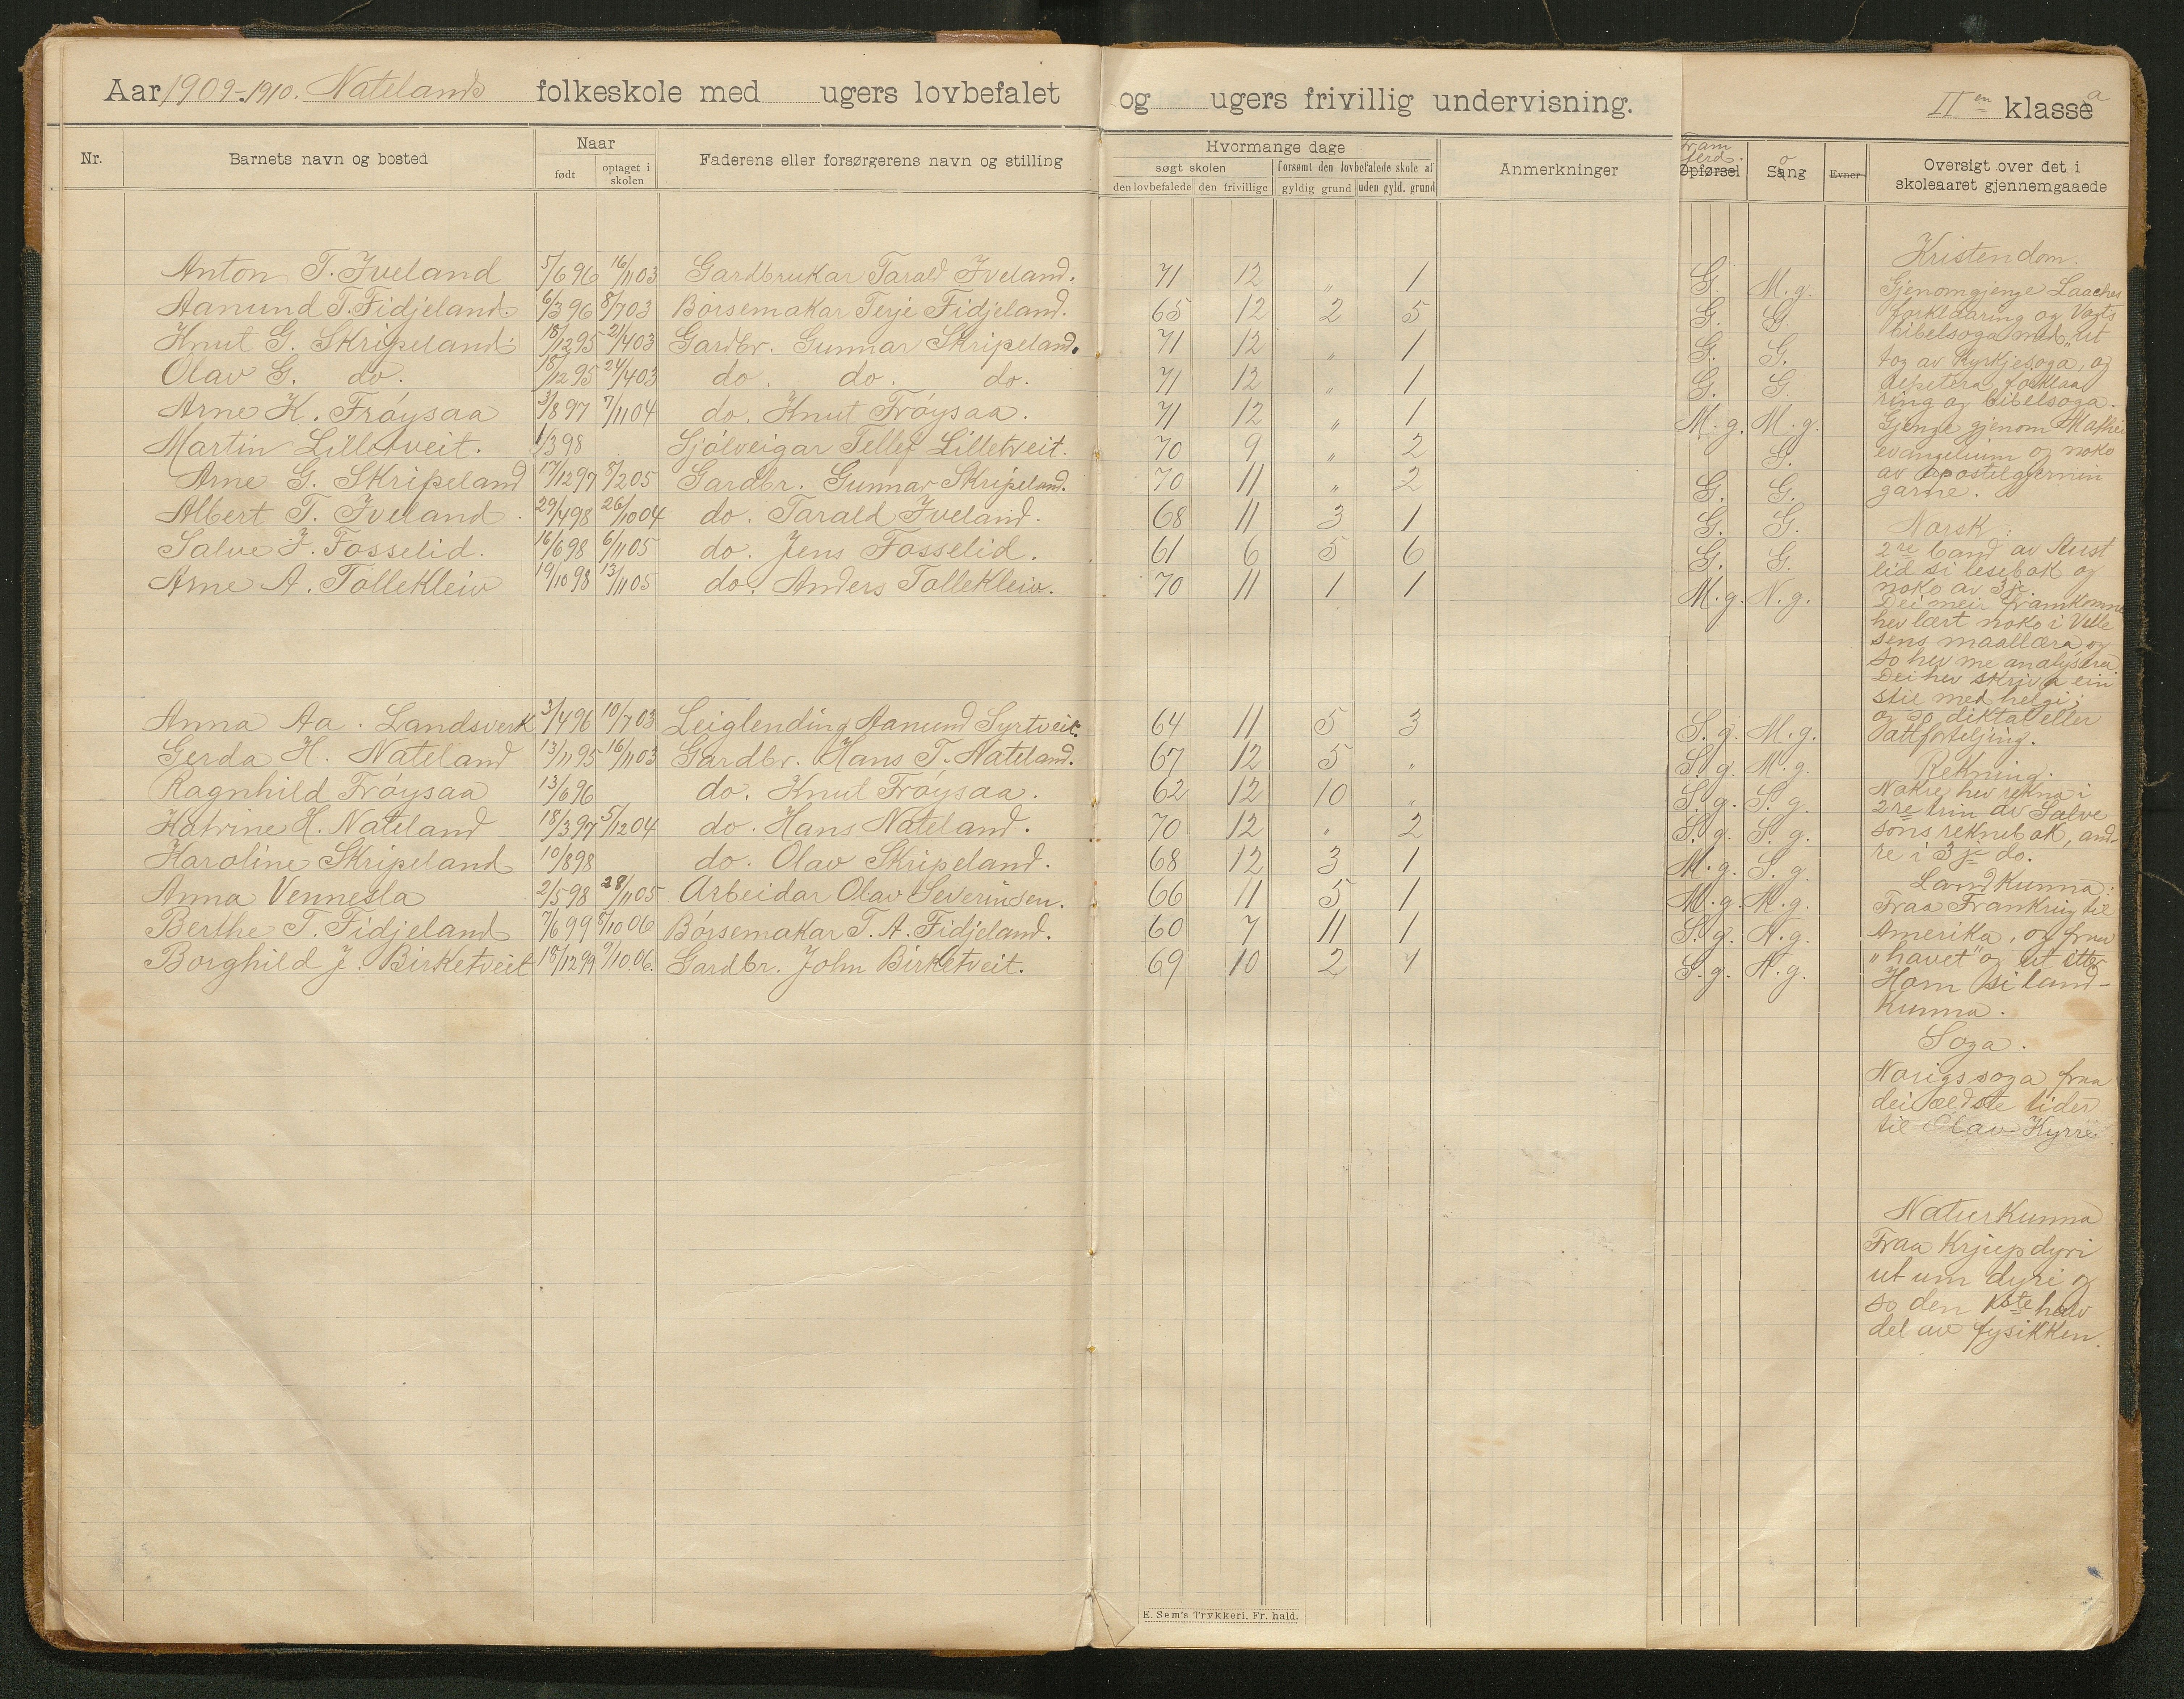 Aar 1909-1910. Natelands folkeskole med ugers lovbefalet og ugers frivillig undervisning. II en klasse a
Nr. Barnets navn og bosted Naar født optaget i skolen Faderens eller forsørgerens navn og stilling
Hvormange dage
søgt skolen forsømt den lovbefalede skole af
den lovbefalede den frivillige gyldig grund uden gyld. grund
Anmerkninger
Framferd. Opførsel Sang o Evner
Oversigt over det i
skoleaaret gjennemgaaede
Anton T. Iveland 5/6 96 16/11 03 Gardbrukar Tarald Iveland. 71 12 „ 1 G. M.g.
Aanund T. Fidjeland. 6/3 96 8/7 03 Børsemakar Terje Fidjeland. 65 12 2 5 G. G.
Knut G. Skripeland. 18/12 95 21/4 03 Gardbr. Gunnar Skripeland. 71 12 „ 1 G. G.
Olav G. do. 18/12 95 24/4 03 do. do. do. 71 12 „ 1 G. G.
Arne K. Frøysaa 3/8 97 7/11 04 do. Knut Frøysaa. 71 12 „ 1 M.g. M.g.
Martin Lilletveit. 1/3 98 Sjølveigar Tellef Lilletveit. 70 9 „ 2 G.
Arne G. Skripeland 17/12 97 8/2 05 Gardbr. Gunnar Skripeland. 70 11 „ 2 G. G.
Albert T. Iveland. 29/4 98 26/10 04 do. Tarald Iveland. 68 11 3 1 G. G.
Salve J. Fosselid. 16/6 98 6/11 05 do. Jens Fosselid. 61 6 5 6 G. G.
Arne A. Tøllekleiv 19/10 98 13/11 05 do. Anders Tøllekleiv. 70 11 1 1 M.g. N.g.
Anna Aa. Landsverk 3/4 96 10/7 03 Leiglending Aanund Syrtveit. 64 11 5 3 S.g. M.g.
Gerda H. Nateland 13/11 95 16/11 03 Gardbr. Hans T. Nateland. 67 12 5 „ S.g. M.g.
Ragnhild Frøysaa 13/6 96 do. Knut Frøysaa. 62 12 10 „ S.g. S.g.
Katrine H. Nateland 18/3 97 5/12 04 do. Hans Nateland. 70 12 „ 2 S.g. S.g.
Karoline Skripeland 10/8 98 do. Olav Skripeland. 68 12 3 1 M.g. S.g.
Anna Vennesla 2/5 98 28/11 05 Arbeidar Olav Severinsen. 66 11 5 1 M.g. M.g.
Berthe T. Fidjeland 7/6 99 8/10 06 Børsemakar T. A. Fidjeland. 60 7 11 1 S.g. N.g.
Borghild J. Birketveit 18/12 99 9/10.06. Gardbr. John Birketveit. 69 10 2 1 S.g. N.g.
Kristendom.
Gjenomgjenge Laaches
forklaaring og Vogts
bibelsoga med ut
tog av kyrkjesoga, og
repetera forklaa
ring og bibelsoga.
Gjenge gjenom Mathei
evangelium og noko
av apostelgjernin
garne.
Norsk:
2re band av Aust
lid si lesebok og
noko av 3je.
Dei meir framkomne
hev lært noko i Ville
sens maallæra og
so hev me analysera.
Dei hev skriva ein
stil med helgi;
og so diktat eller
attforteljing.
Rekning.
Nokre hev rekna i
2re trin av Salve
sons reknebok, and-
re i 3je do.
Landkunna:
Fraa Frankrig til
Amerika, og fraa
„havet" og ut etter
Horn si land-
kunna.
Soga.
Norigssoga fraa
dei ældste tider
til Olav Kyrre.
Naturkunna
Fraa krjupdyri
ut um dyri og
so den 1ste halv
del av fysikken.
E. Sem's Trykkeri. Fr. hald.